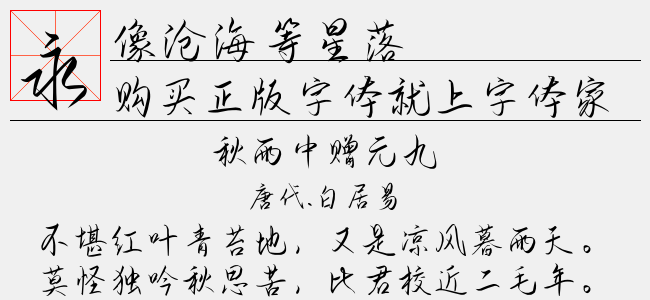 永
像沧海等星落
购买正版字体就上字体家
秋雨中赠元九
唐代.白居易
不堪红叶青苔地，又是凉风暮雨天。
莫怪独吟秋思苦，比君校近二毛年。